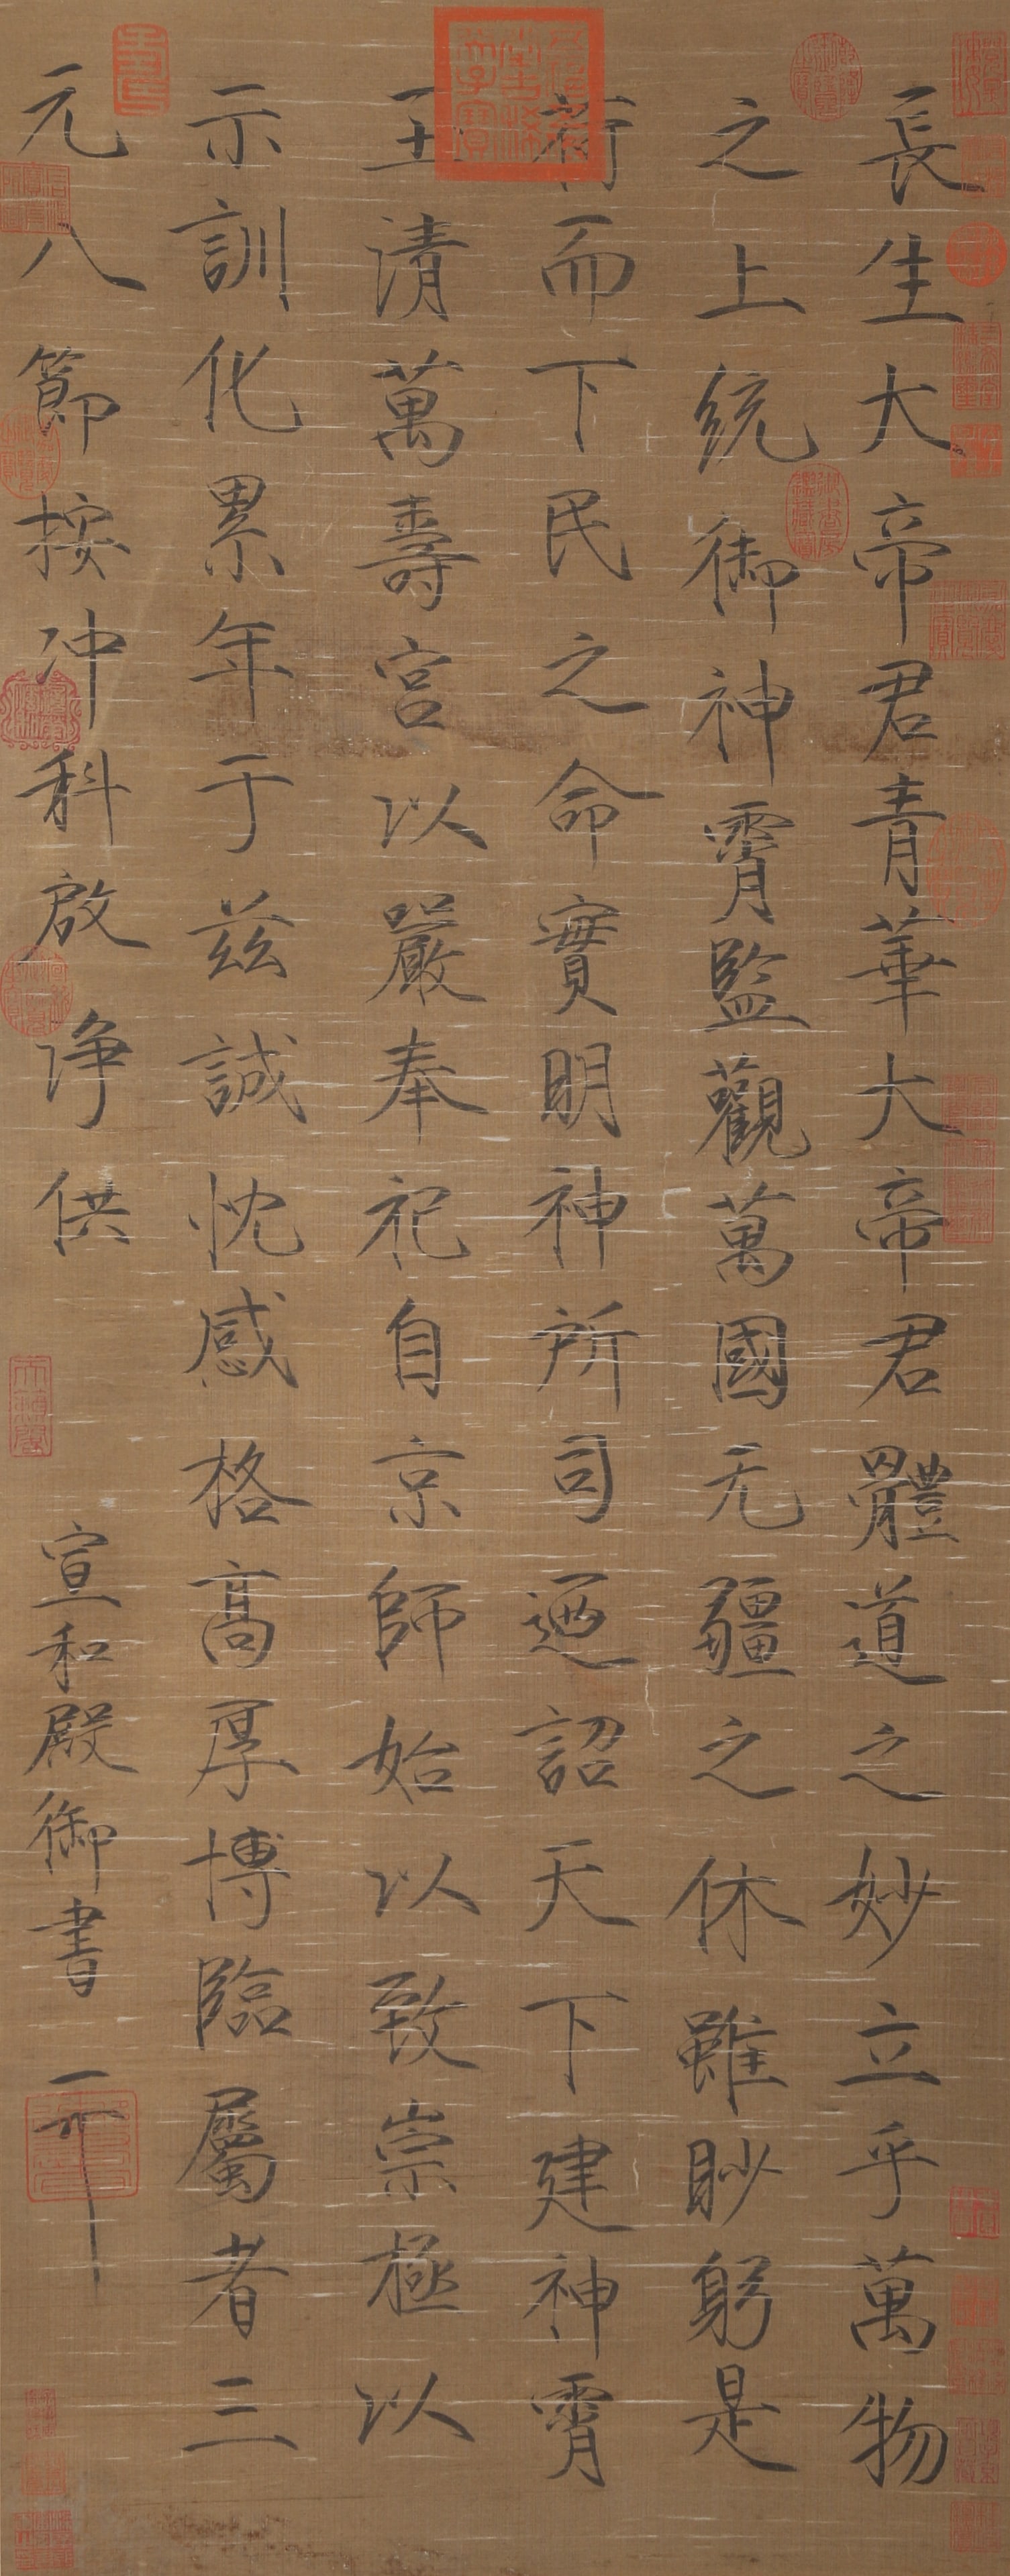 長生大帝君青華大帝君體道之妙立乎萬物
之上統御神霄監觀萬國无疆之休雖眇躬是
荷而下民之命實明神所司迺詔天下建神霄
玉清萬壽宮以嚴奉祀自京師始以致崇極以
示訓化累年于兹誠忱感格高厚博臨屬者三
元八節按冲科啟净供
宣和殿御書